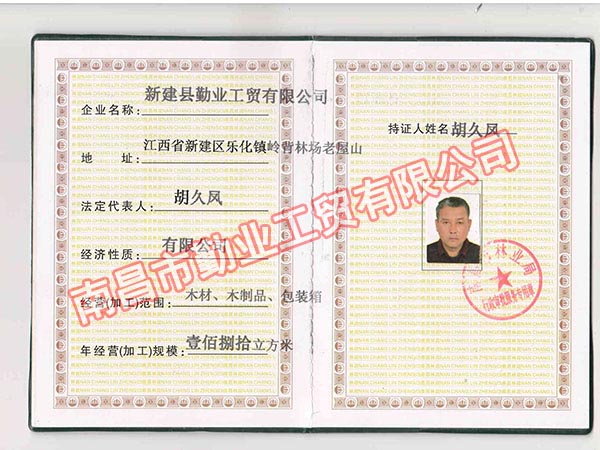 企业名称: 新建县勤业工贸有限公司
地 址: 江西省新建区乐化镇岭背林场老屋山
法定代表人: 胡久凤
经济性质: 有限公司
经营(加工)范围: 木材、木制品、包装箱
年经营(加工)规模: 壹佰捌拾立方米
持证人姓名 胡久凤
林业局
南昌市勤业工贸有限公司